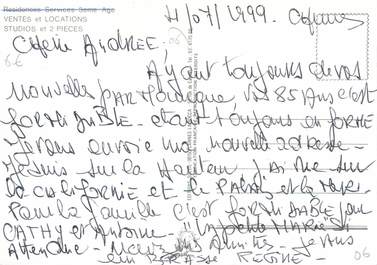 Residences Services 3eme Age
VENTES et LOCATIONS
STUDIOS et 2 PIECES
21/07/1999. Cannes
Chère Andrée,
06
6€
Ayant toujours de vos
nouvelles par Monique, vos 85 ans c'est
formidable - étant toujours en forme
Je vous envoie ma nouvelle adresse -
Je suis sur la Hauteur j'ai vue sur
la Californie et le Palais et la mer.
Pour la famille c'est formidable pour
CATHY et Antoine - "la petite MARIE"
Attendue - Mes amitiés - Je vous
embrasse REGINE -
06